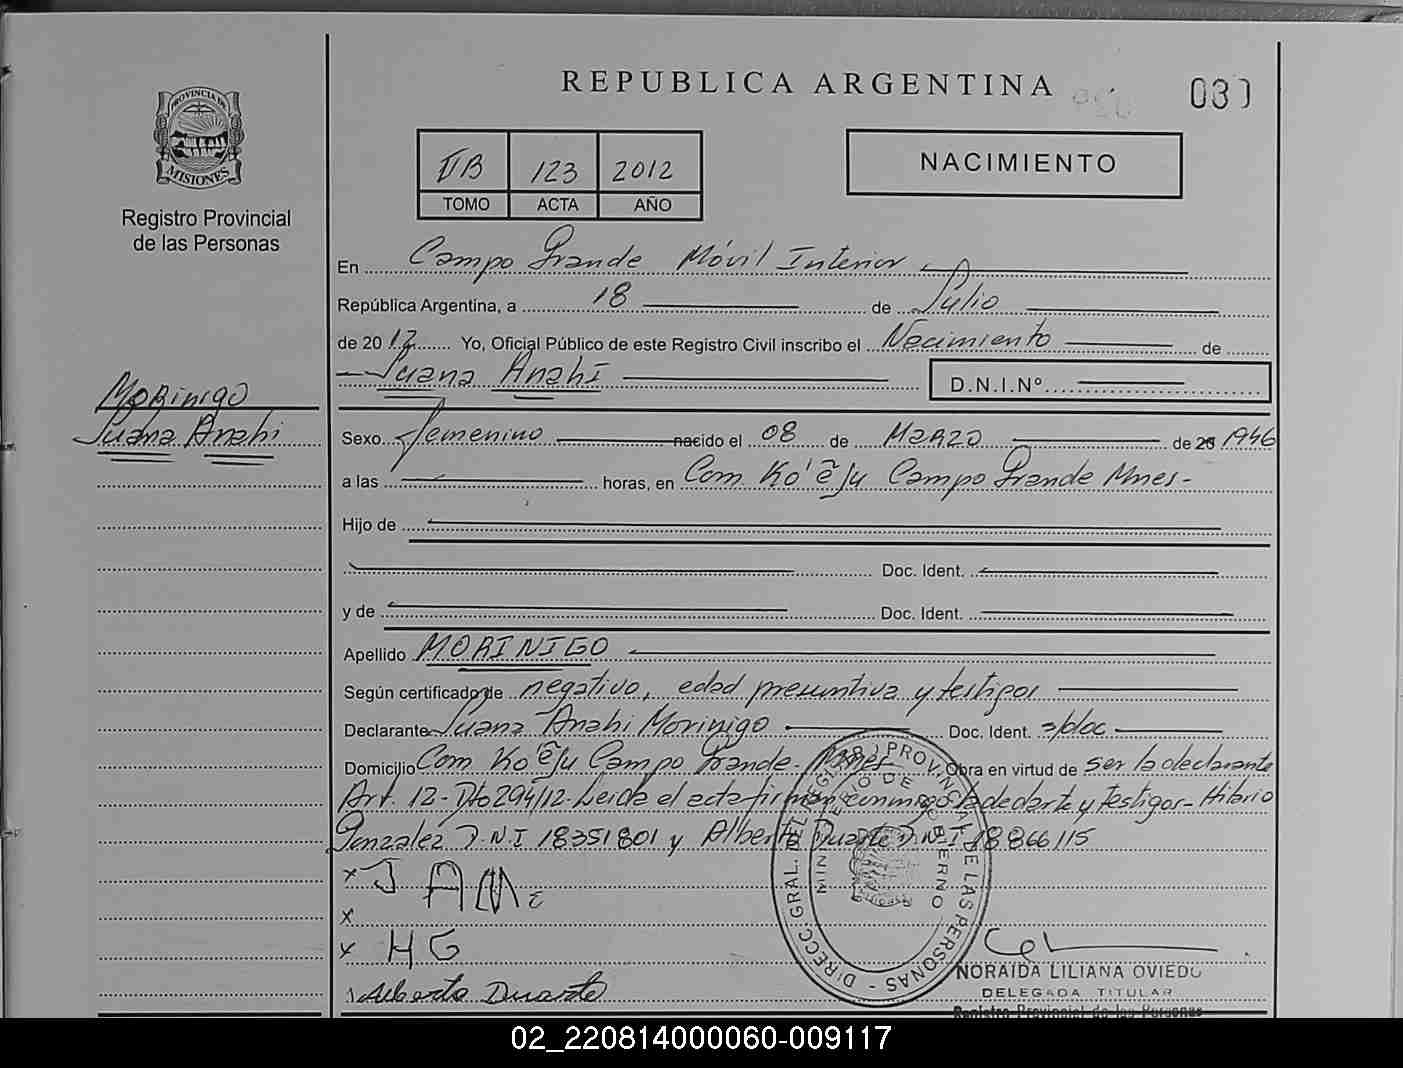 REPUBLICA ARGENTINA
030
PROVINCIA DE
MISIONES
Registro Provincial
de las Personas
IIB 123 2012
TOMO ACTA AÑO
NACIMIENTO
En Campo Grande Móvil Interior
República Argentina, a 18 de Julio
de 2012 Yo, Oficial Público de este Registro Civil inscribo el Nacimiento de
Juana Anahí
D.N.I.Nº
MORINIGO
Juana Anahi
Sexo Femenino nacido el 08 de MARZO de 20 1946
a las horas, en Com. Ko'ẽJu Campo Grande Mnes-
Hijo de
Doc. Ident.
y de Doc. Ident.
Apellido MORINIGO
Según certificado de negativo, edad presuntiva y testigos
Declarante Juana Anahi Morinigo Doc. Ident. s/doc
Domicilio Com Ko'ẽJu Campo Grande. Mnes- Obra en virtud de ser la declarante
Art. 12- Dto 294/12- Leida el acta firman conmigo la declarte y testigos- Hilario
Gonzalez D.N.I 18351801 y Alberto Duarte D.N.I 18866115
x J AM
x
x H G
Alberto Duarte
DIRECC. GRAL. DEL REGISTRO PROVINCIAL DE LAS PERSONAS -
MINISTERIO DE GOBIERNO
NORAIDA LILIANA OVIEDO
DELEGADA TITULAR
Registro Provincial de las Personas
02_220814000060-009117